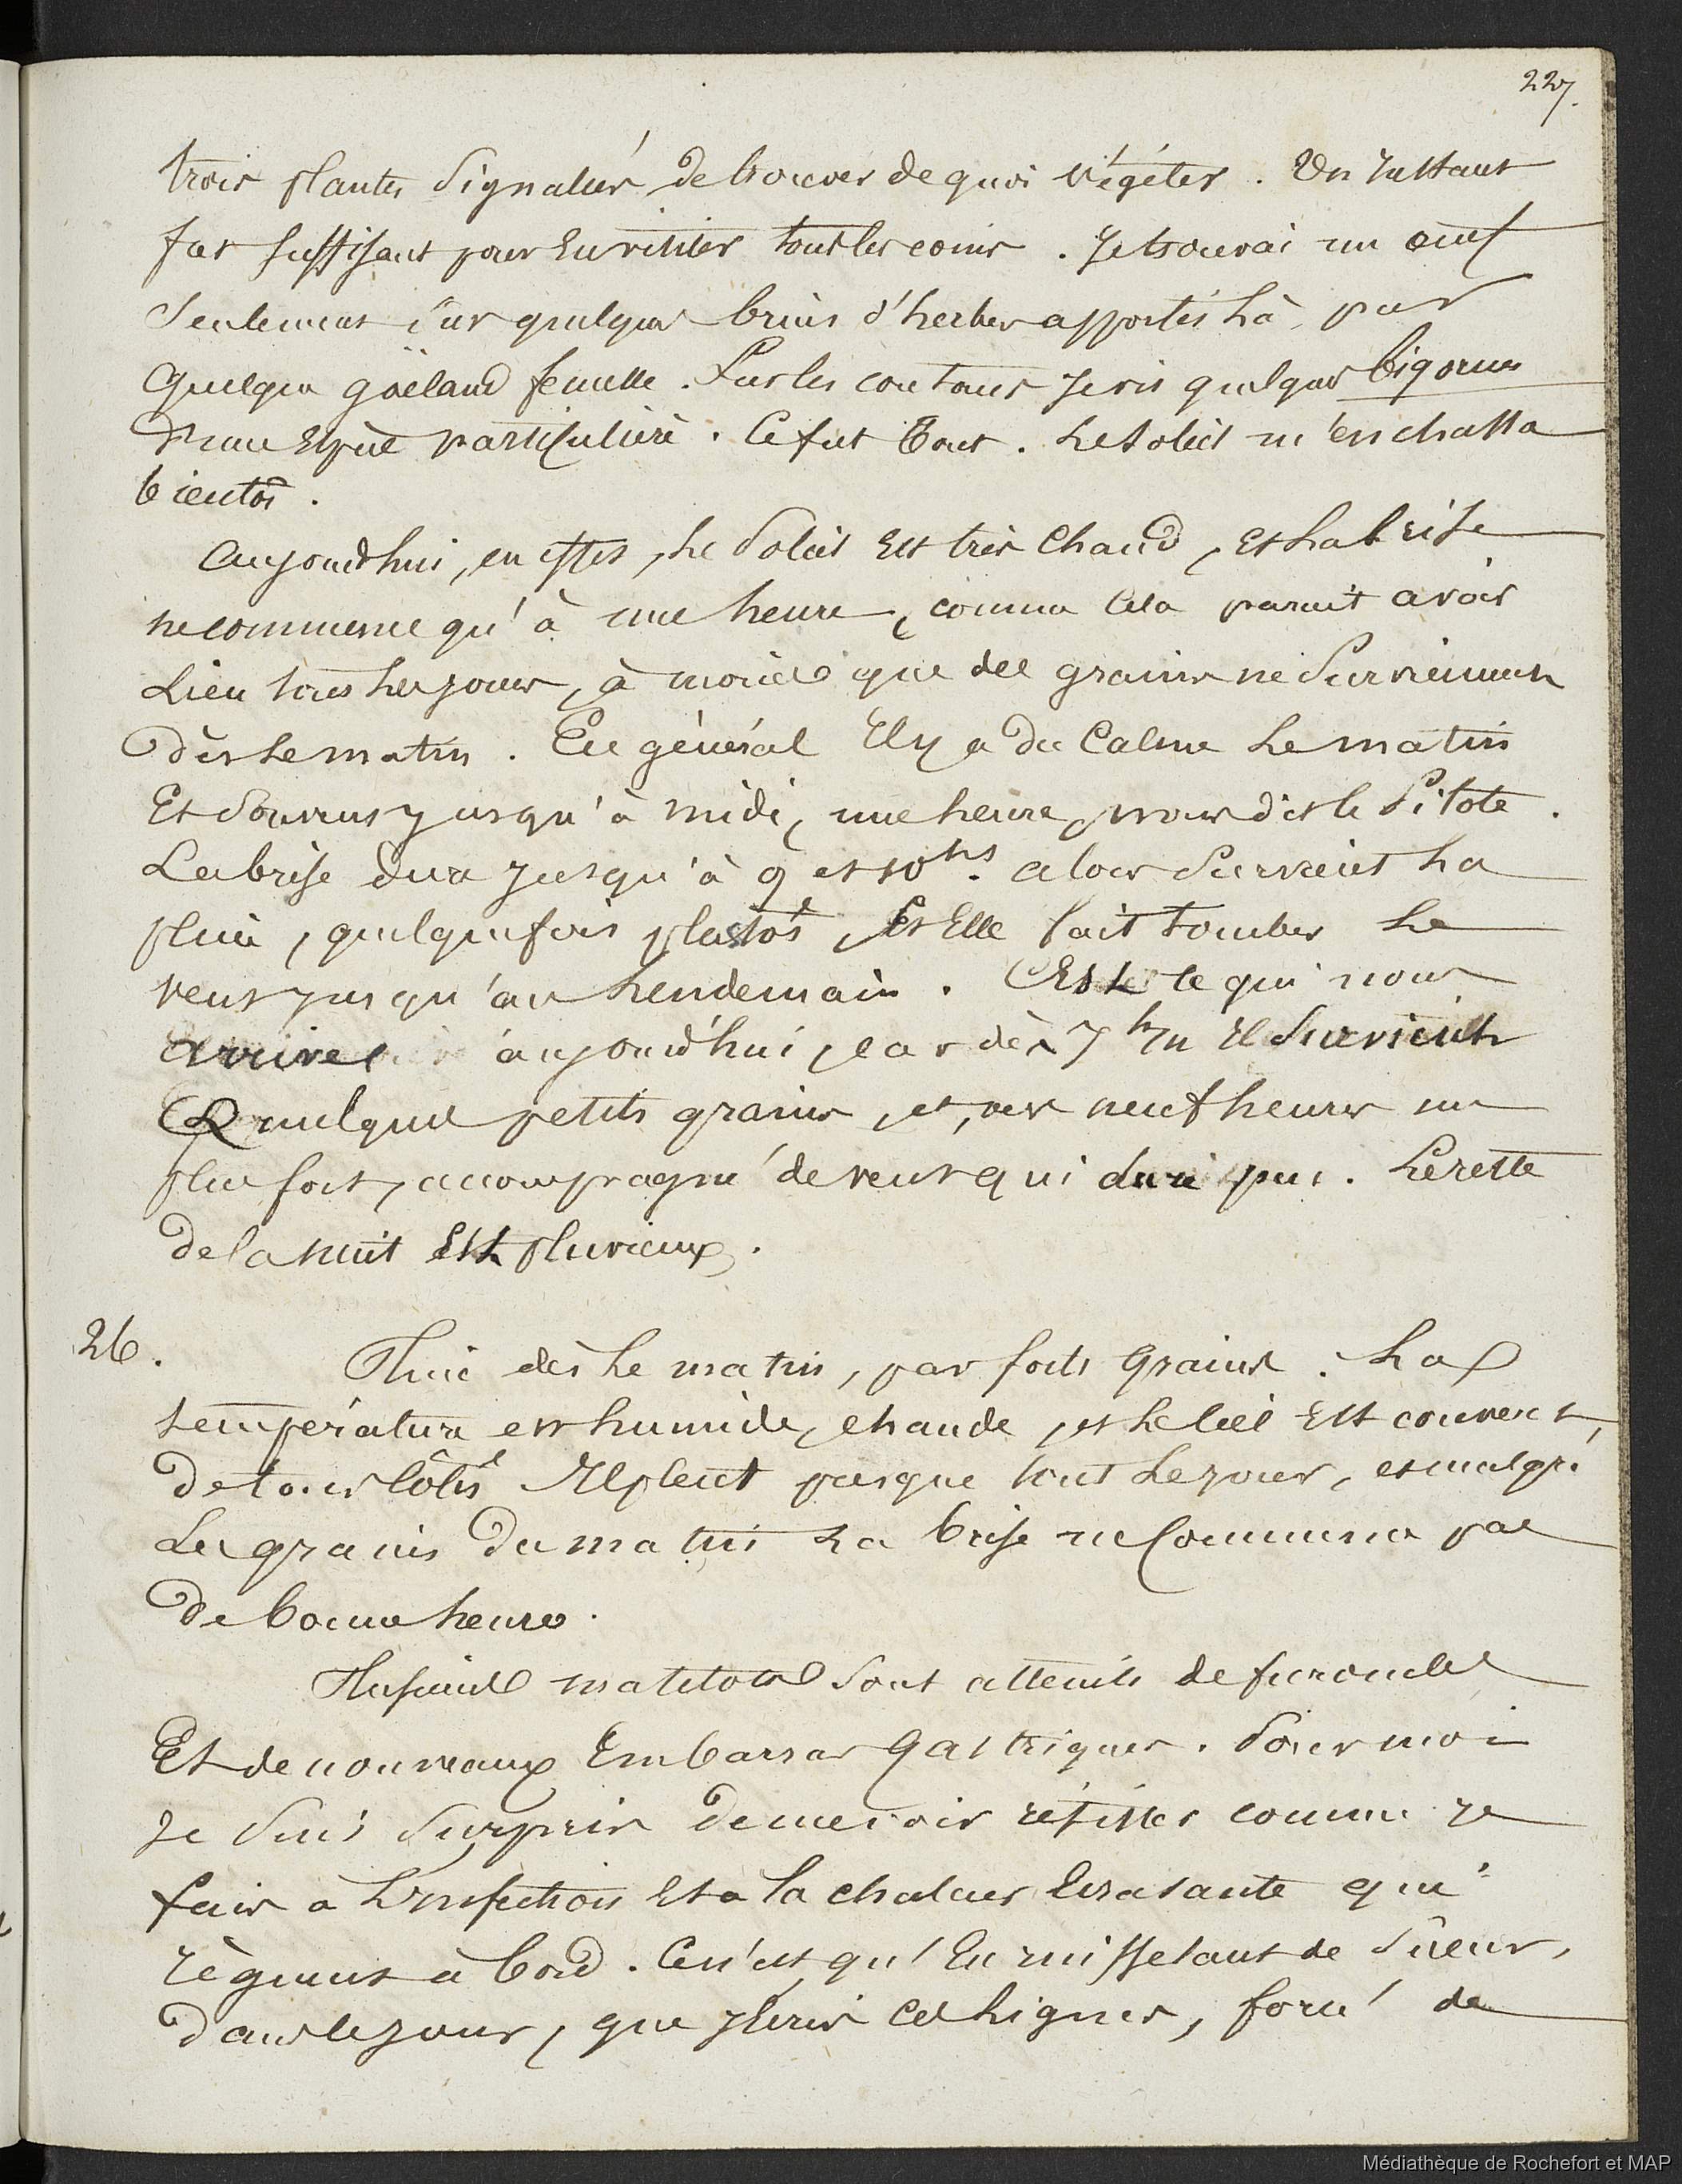 227.
trois plantes signalées de trouver de quoi végéter. Un instant
fut suffisant pour en visiter tous les coins. Je trouvai un œuf
seulement sur quelques brins d'herbes apportés là par
quelque goëland femelle. Sur les contours je vis quelques bigornes
d'une espèce particulière. Ce fut tout. Le soleil m'en chassa
bientôt.
Aujourd'hui, en effet, le soleil est très chaud, et la brise
ne commence qu'à une heure, comme cela parait avoir
lieu tous les jours, à moins que des grains ne surviennent
dès le matin. En général il y a du calme le matin
et souvent jusqu'à midi, une heure, nous dit le Pilote.
La brise dure jusqu'à 9 et 10 hs. alors survient la
pluie, quelquefois plustôt, et elle fait tomber le
vent jusqu'au lendemain. C'est ce qui nous
arrive aujourd'hui, car dès 7 h 1/2 il survient
quelques petits grains, et, vers neuf heures un
plus fort, accompagné de vent qui dure peu. Le reste
de la nuit est pluvieux.
26.
Pluie dès le matin, par forts grains. La
température est humide, chaude, et le ciel est couvert,
de tous côtés. Il pleut presque tout le jour, et malgré
les grains du matin la brise ne commence pas
de bonne heure.
Plusieurs matelots sont atteints de furoncles
et de nouveaux embarras gastriques. Pour moi
je suis surpris de me voir résister comme je
fais à l'infection et à la chaleur écrasante qui
règnent à bord. Ce n'est qu'en ruisselant de sueur,
dans le jour, que j'écris ces lignes, forcé de
Médiathèque de Rochefort et MAP